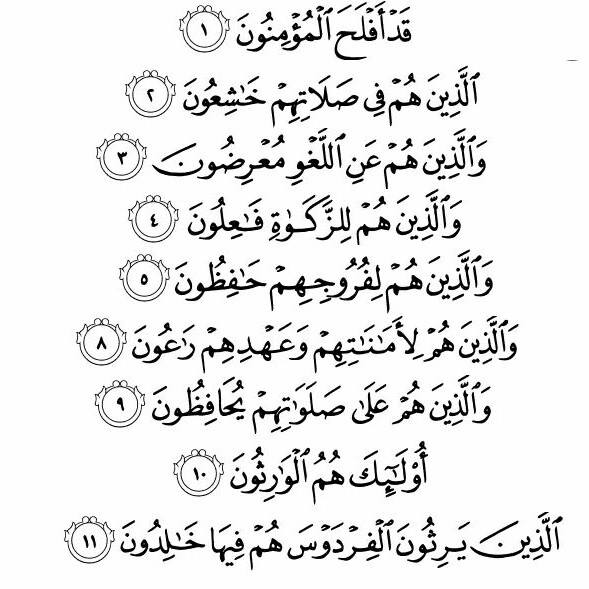 قَدْ أَفْلَحَ ٱلْمُؤْمِنُونَ ١
ٱلَّذِينَ هُمْ فِى صَلَاتِهِمْ خَٰشِعُونَ ٢
وَٱلَّذِينَ هُمْ عَنِ ٱللَّغْوِ مُعْرِضُونَ ٣
وَٱلَّذِينَ هُمْ لِلزَّكَوٰةِ فَٰعِلُونَ ٤
وَٱلَّذِينَ هُمْ لِفُرُوجِهِمْ حَٰفِظُونَ ٥
وَٱلَّذِينَ هُمْ لِأَمَٰنَٰتِهِمْ وَعَهْدِهِمْ رَٰعُونَ ٨
وَٱلَّذِينَ هُمْ عَلَىٰ صَلَوَٰتِهِمْ يُحَافِظُونَ ٩
أُوْلَٰٓئِكَ هُمُ ٱلْوَٰرِثُونَ ١٠
ٱلَّذِينَ يَرِثُونَ ٱلْفِرْدَوْسَ هُمْ فِيهَا خَٰلِدُونَ ١١